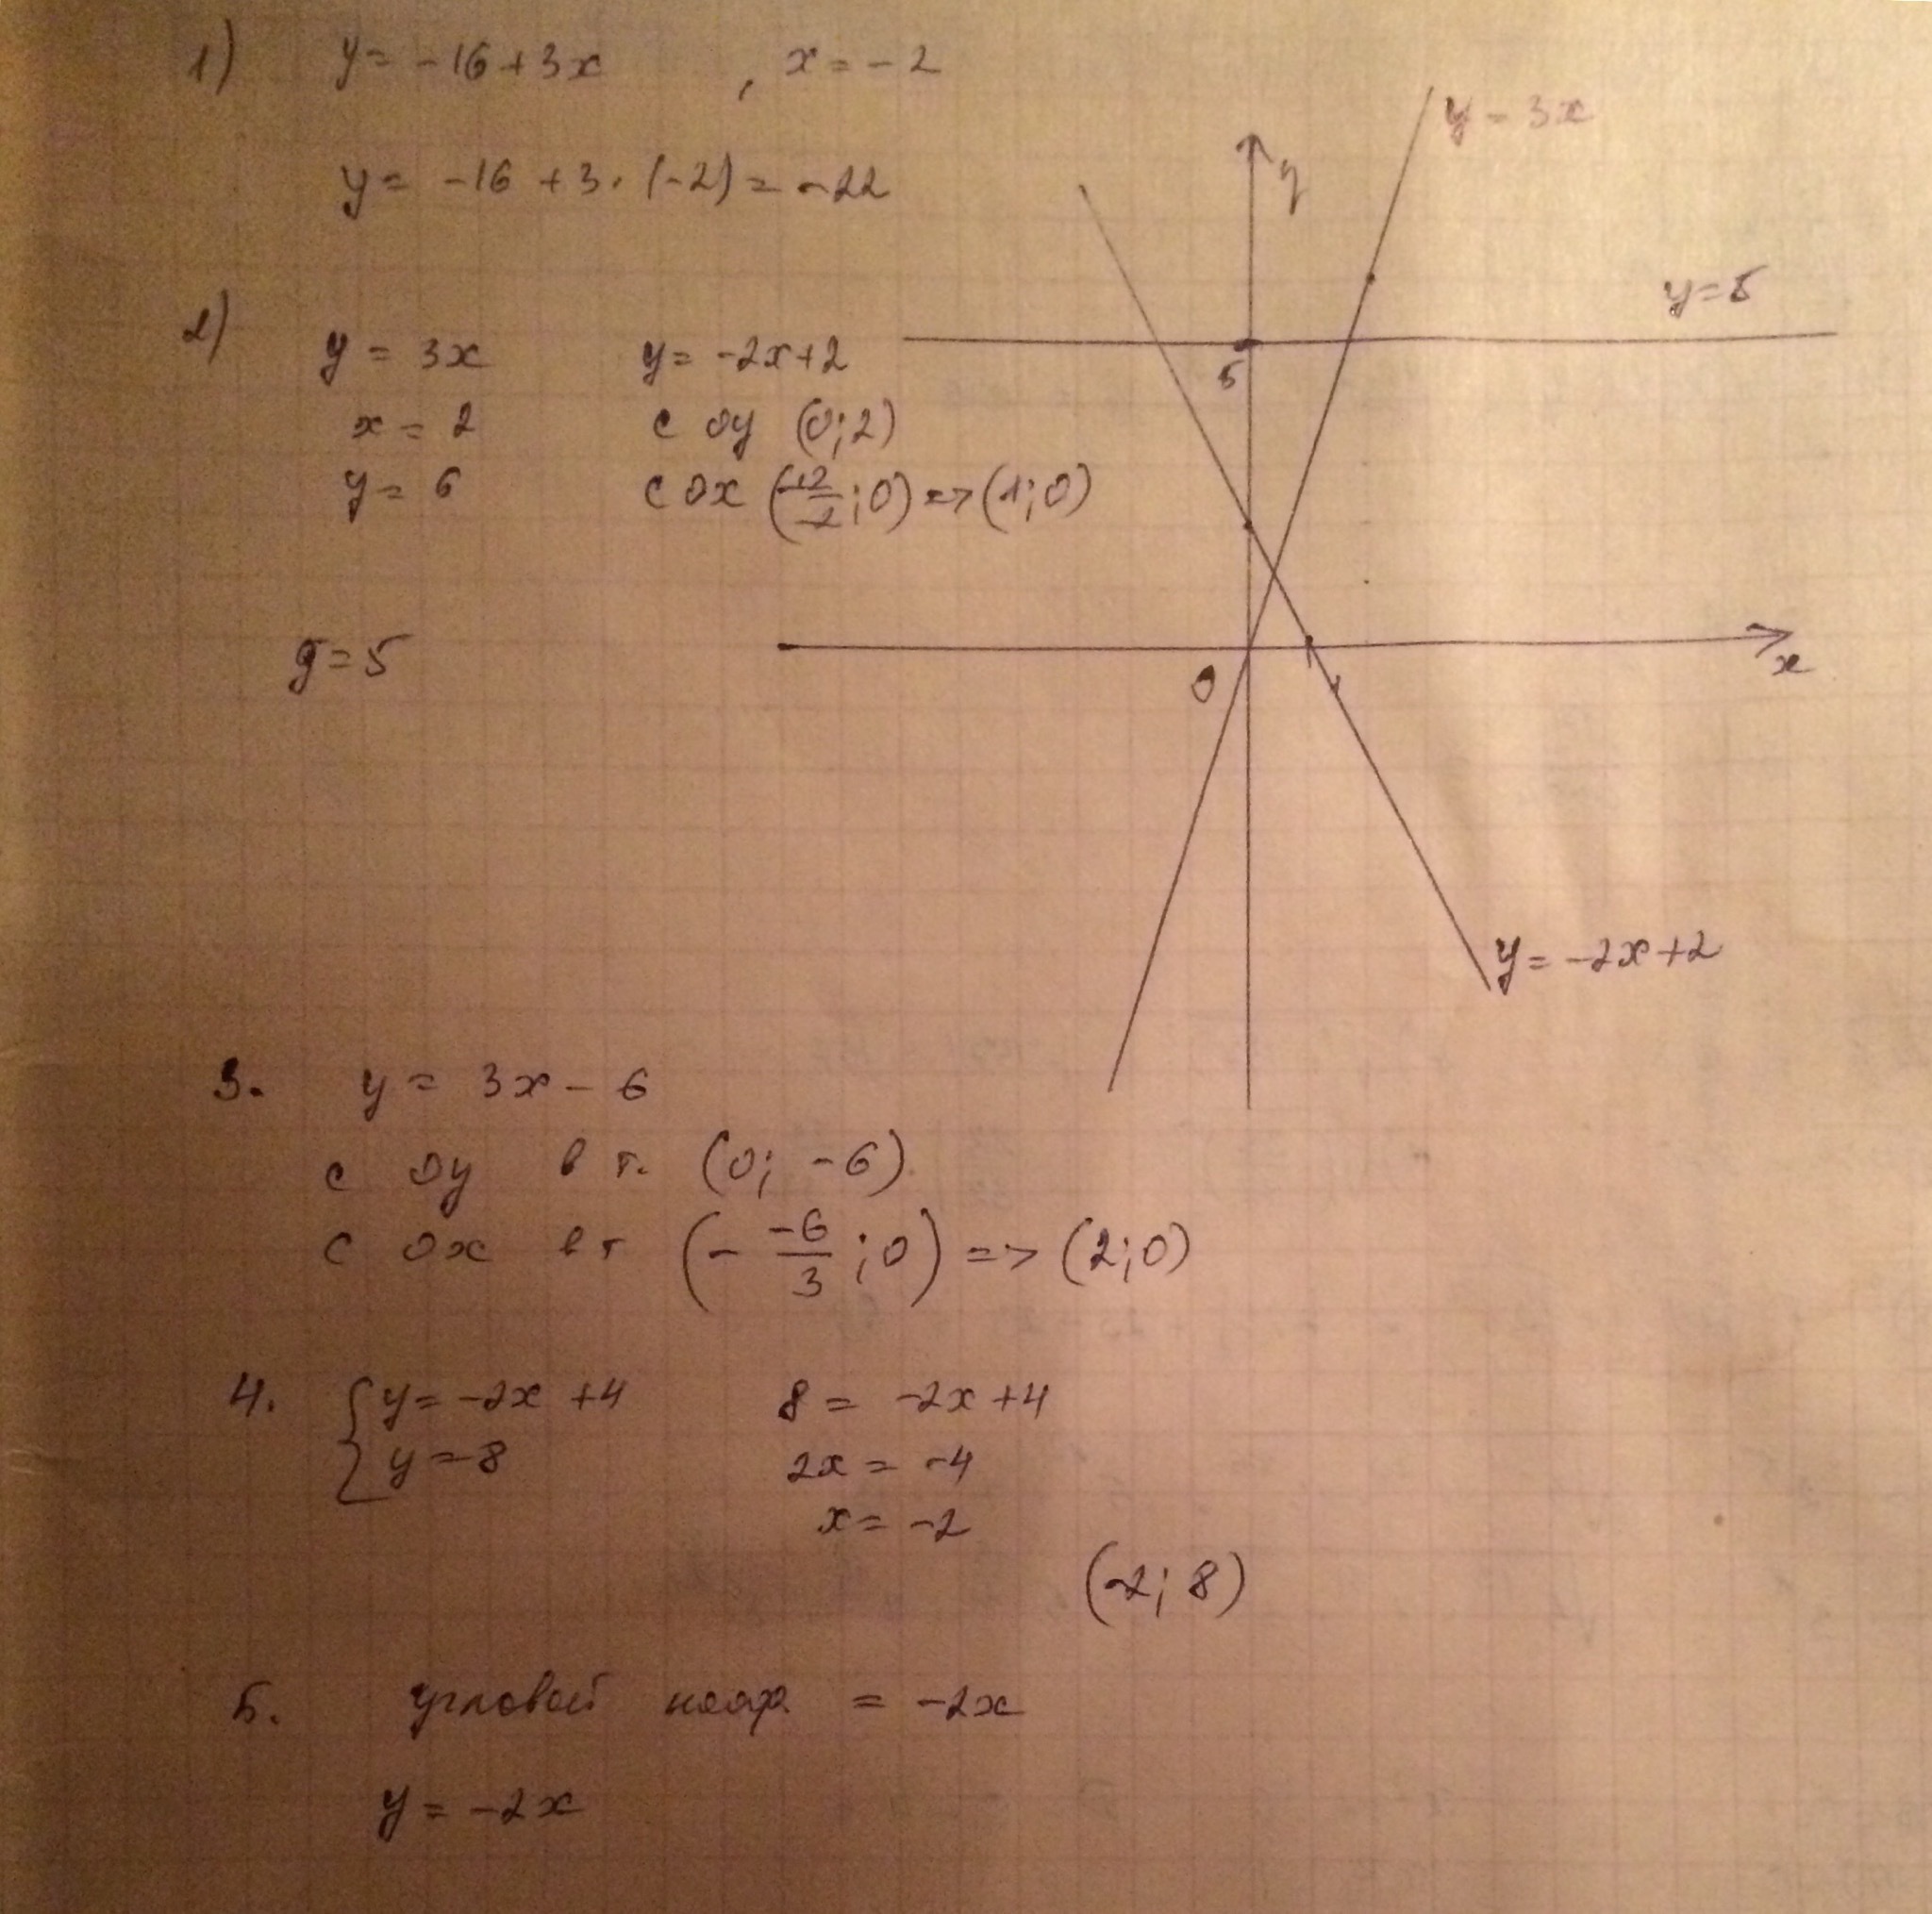 1) y = -16 + 3x , x = -2
y = -16 + 3 · (-2) = -22
2) y = 3x y = -2x+2
x = 2 с oy (0; 2)
y = 6 с ox (-2/-2; 0) => (1; 0)
y = 5
y = 3x
y
y = 5
5
0
1
x
y = -2x+2
3. y = 3x - 6
с oy в т. (0; -6)
с ox в т (- -6/3 ; 0) => (2; 0)
4. { y = -2x + 4 8 = -2x + 4
y = 8 2x = -4
x = -2
(-2; 8)
5. угловой коэф = -2x
y = -2x